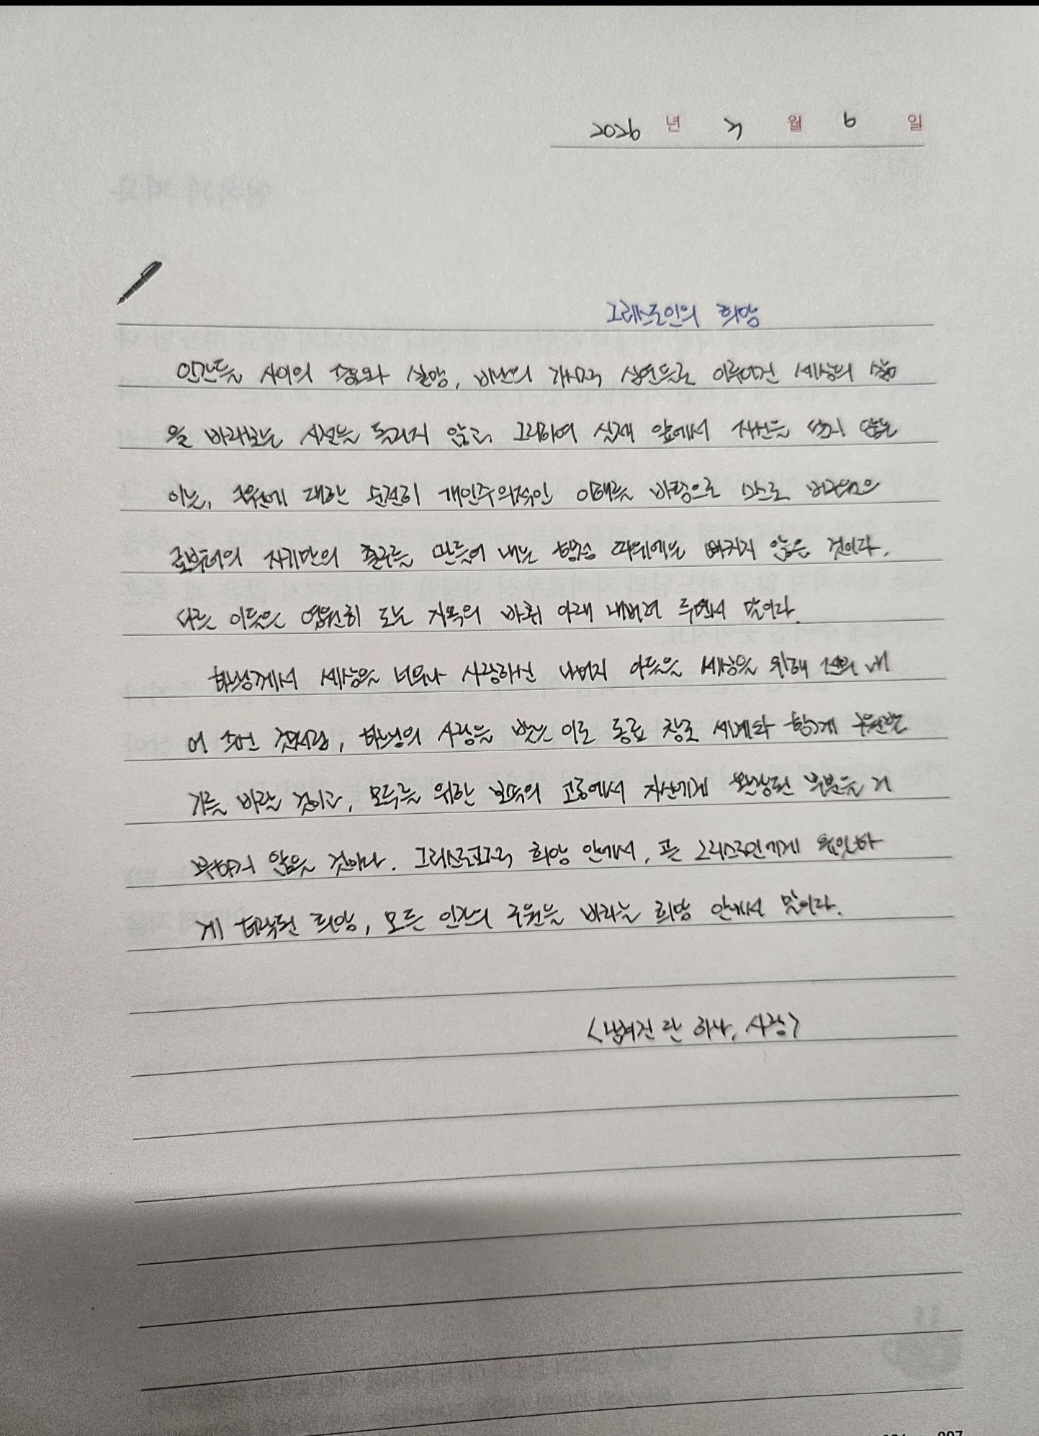 2026 년 7 월 6 일
그리스도인의 희망
인간들 사이의 증오와 절망, 비난의 가시적 심연들로 이루어진 세상의 삶
을 바라보는 시선을 돌리지 않고, 그리하여 실재 앞에서 자신을 닫지 않는
이는, 구원에 대한 순전히 개인주의적인 이해를 바탕으로
로부터의 자기만의 출구를 만들어 내는 따위에는 빠지지 않은 것이다.
다른 이들은 영원히 도는 지옥의 바퀴 아래 내버려 두면서 말이다.
하느님께서 세상을 너무나 사랑하신 나머지 아들을 세상을 위해 내
어 주신 것처럼, 하느님의 사랑을 받는 이도 동료 창조 세계와 함께 구원받
기를 바랄 것이고, 모두를 위한 보속의 고통에서 자신에게 할당된 부분을 거
부하지 않을 것이다. 그리스도교적 희망 안에서, 곧 그리스도인에게 유일하
게 허락된 희망, 모든 인간의 구원을 바라는 희망 안에서 말이다.
<남겨진 단 하나, 사랑>